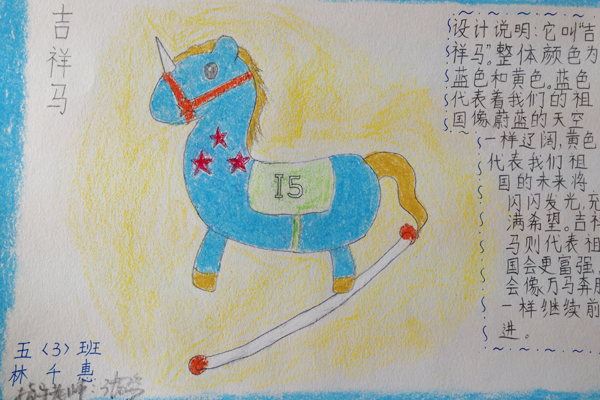 吉祥马
设计说明:它叫“吉
祥马”。整体颜色为
蓝色和黄色。蓝色
代表着我们的祖
国像蔚蓝的天空
一样辽阔,黄色
代表我们祖
国的未来将
闪闪发光,充
满希望。吉祥
马则代表祖
国会更富强,
会像万马奔腾
一样继续前
进。
15
五〈3〉班
林千惠